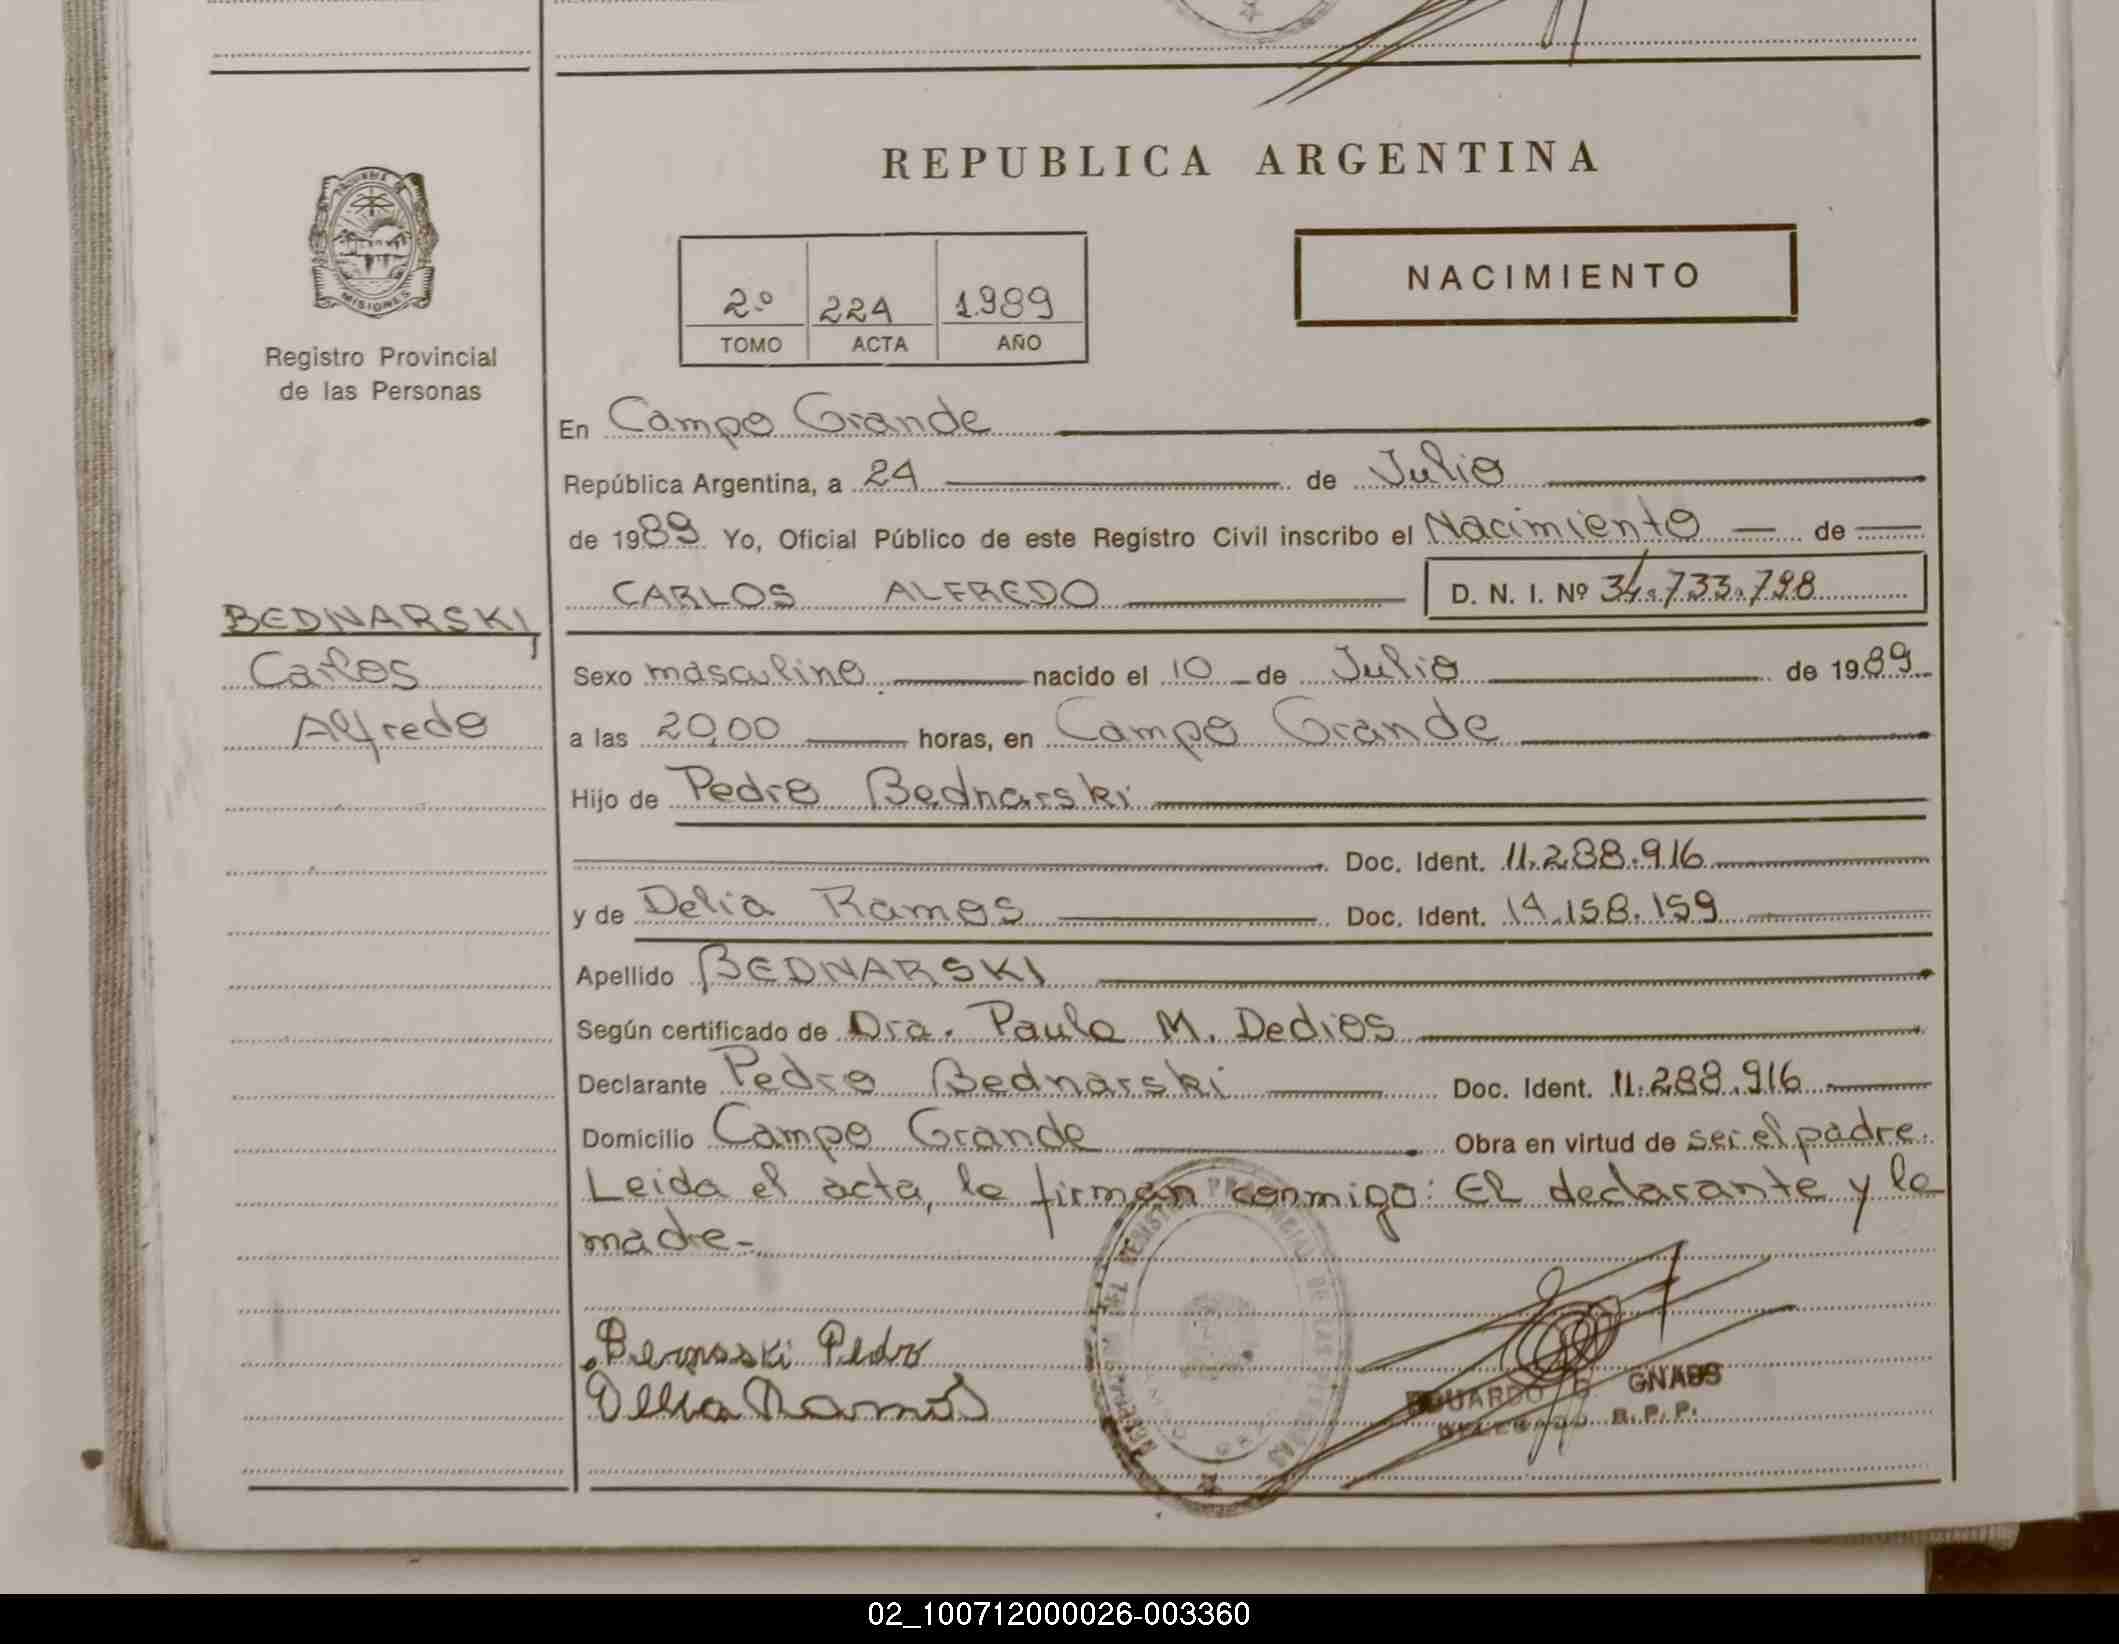 REPUBLICA ARGENTINA
MISIONES
Registro Provincial
de las Personas
2º 224 1.989
TOMO ACTA AÑO
NACIMIENTO
En Campo Grande
República Argentina, a 24 de Julio
de 1989 Yo, Oficial Público de este Registro Civil inscribo el Nacimiento de
CARLOS ALFREDO D. N. I. Nº 34.733.798
BEDNARSKI,
Carlos
Alfredo
Sexo masculino nacido el 10 de Julio de 1989
a las 20,00 horas, en Campo Grande
Hijo de Pedro Bednarski
Doc. Ident. 11.288.916
y de Delia Ramos Doc. Ident. 14.158.159
Apellido BEDNARSKI
Según certificado de Dra. Paula M. Dedios
Declarante Pedro Bednarski Doc. Ident. 11.288.916
Domicilio Campo Grande Obra en virtud de ser el padre.
Leida el acta, la firman conmigo: El declarante y la
madre-
Pedro
Delia Ramos
EDUARDO GNASS
DELEGADO R.P.P.
02_100712000026-003360